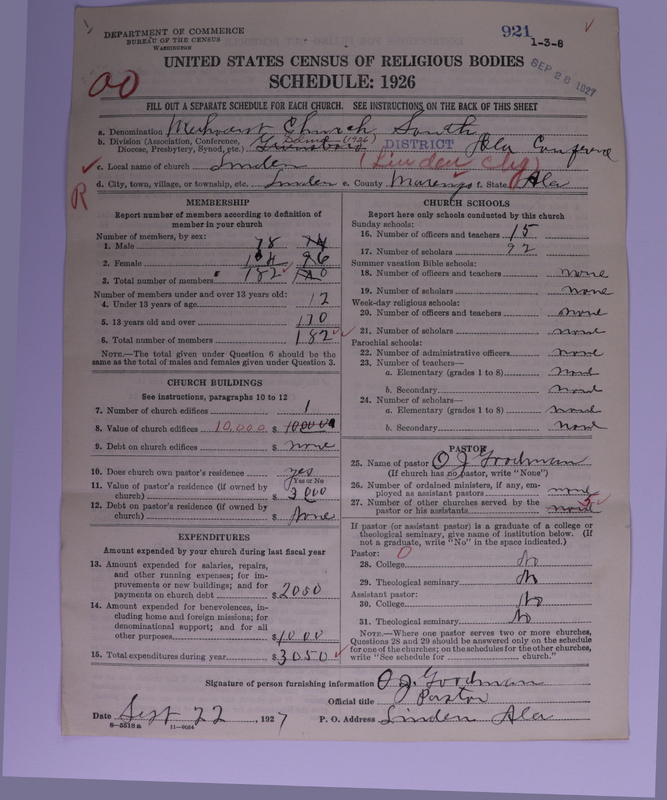 DEPARTMENT OF COMMERCE
BUREAU OF THE CENSUS
WASHINGTON
921
1-3-6
SEP 28 1927
UNITED STATES CENSUS OF RELIGIOUS BODIES
SCHEDULE: 1926
FILL OUT A SEPARATE SCHEDULE FOR EACH CHURCH. SEE INSTRUCTIONS ON THE BACK OF THIS SHEET
a. Denomination Methodist Church South
b. Division (Association, Conference, Diocese, Presbytery, Synod, etc.) Greensboro (1926) DISTRICT Ala Conference
c. Local name of church Linden (Linden chg)
d. City, town, village, or township, etc. Linden e. County Marengo f. State Ala
R
MEMBERSHIP
Report number of members according to definition of
member in your church
Number of members, by sex:
1. Male 78 74
2. Female 104 96
3. Total number of members 182
Number of members under and over 13 years old:
4. Under 13 years of age 12
5. 13 years old and over 170
6. Total number of members 182
NOTE.—The total given under Question 6 should be
the same as the total of males and females given under Question 3.
CHURCH BUILDINGS
See instructions, paragraphs 10 to 12
7. Number of church edifices 1
8. Value of church edifices 10,000 $ 10000
9. Debt on church edifices $ none
10. Does church own pastor's residence yes
Yes or No
11. Value of pastor's residence (if owned by
church) $ 3000
12. Debt on pastor's residence (if owned by
church) $ None
EXPENDITURES
Amount expended by your church during last fiscal year
13. Amount expended for salaries, repairs,
and other running expenses; for im-
provements or new buildings; and for
payments on church debt $ 2050
14. Amount expended for benevolences, in-
cluding home and foreign missions; for
denominational support; and for all
other purposes $ 1000
15. Total expenditures during year $ 3050
CHURCH SCHOOLS
Report here only schools conducted by this church
Sunday schools:
16. Number of officers and teachers 15
17. Number of scholars 92
Summer vacation Bible schools:
18. Number of officers and teachers none
19. Number of scholars none
Week-day religious schools:
20. Number of officers and teachers none
21. Number of scholars none
Parochial schools:
22. Number of administrative officers none
23. Number of teachers—
a. Elementary (grades 1 to 8) none
b. Secondary none
24. Number of scholars—
a. Elementary (grades 1 to 8) none
b. Secondary none
PASTOR
25. Name of pastor O J Goodman
(If church has no pastor, write "None")
26. Number of ordained ministers, if any, em-
ployed as assistant pastors none
27. Number of other churches served by the
pastor or his assistants none
If pastor (or assistant pastor) is a graduate of a college or
theological seminary, give name of institution below. (If
not a graduate, write "No" in the space indicated.)
Pastor: 0
28. College No
29. Theological seminary No
Assistant pastor:
30. College No
31. Theological seminary No
NOTE.—Where one pastor serves two or more churches,
Questions 28 and 29 should be answered only on the schedule
for one of the churches; on the schedules for the other churches,
write "See schedule for church."
Signature of person furnishing information O J. Goodman
Official title Pastor
Date Sept 22, 1927 P. O. Address Linden Ala
8-5518a 11-9064